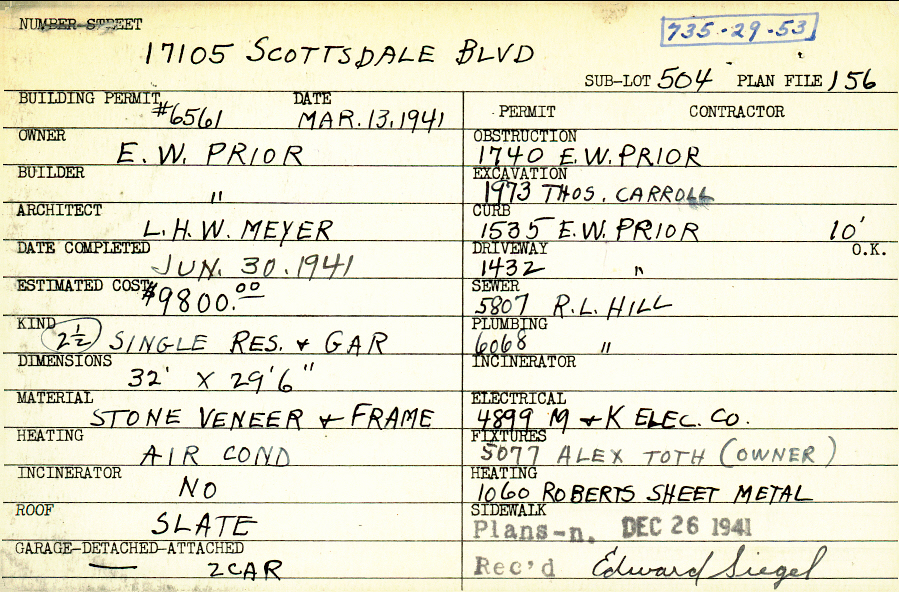 NUMBER-STREET
735-29-53
17105 SCOTTSDALE BLVD
SUB-LOT 504 PLAN FILE 156
BUILDING PERMIT #6561 DATE MAR. 13, 1941
OWNER E. W. PRIOR
BUILDER "
ARCHITECT L. H. W. MEYER
DATE COMPLETED JUN. 30. 1941
ESTIMATED COST $9800.00
KIND 2½ SINGLE RES. & GAR
DIMENSIONS 32' X 29'6"
MATERIAL STONE VENEER & FRAME
HEATING AIR COND
INCINERATOR NO
ROOF SLATE
GARAGE-DETACHED-ATTACHED
— 2 CAR
PERMIT CONTRACTOR
OBSTRUCTION
1740 E. W. PRIOR
EXCAVATION
1973 THOS. CARROLL
CURB
1535 E. W. PRIOR 10'
DRIVEWAY O.K.
1432 "
SEWER
5807 R. L. HILL
PLUMBING
6068 "
INCINERATOR
ELECTRICAL
4899 M & K ELEC. CO.
FIXTURES
5077 ALEX TOTH (OWNER)
HEATING
1060 ROBERTS SHEET METAL
SIDEWALK
Plans-n. DEC 26 1941
Rec'd Edward Siegel